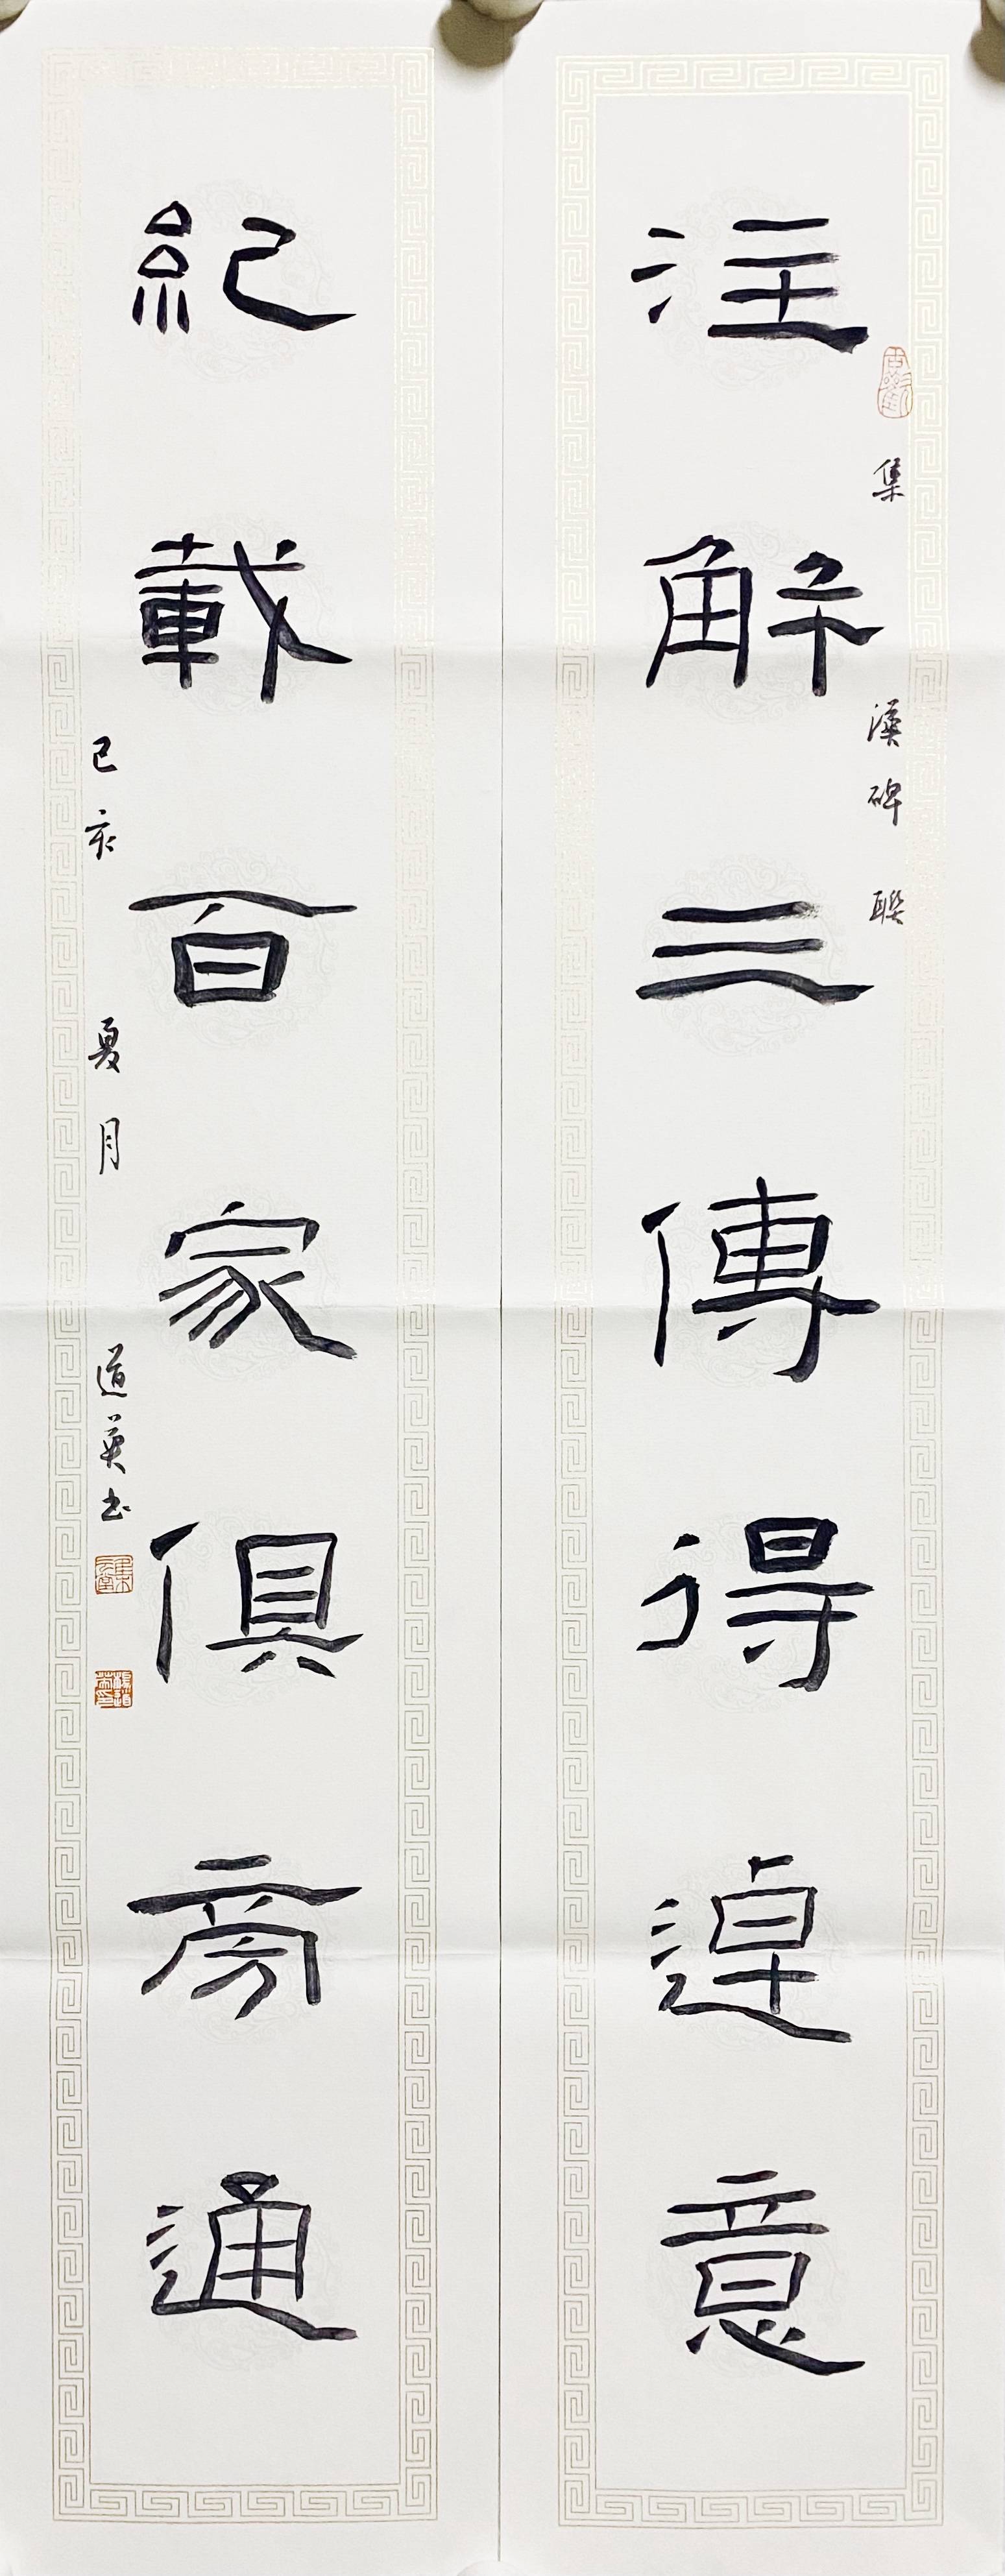 注解三傳得逴意
集漢碑聯
紀載百家俱旁通
己亥夏月道英书